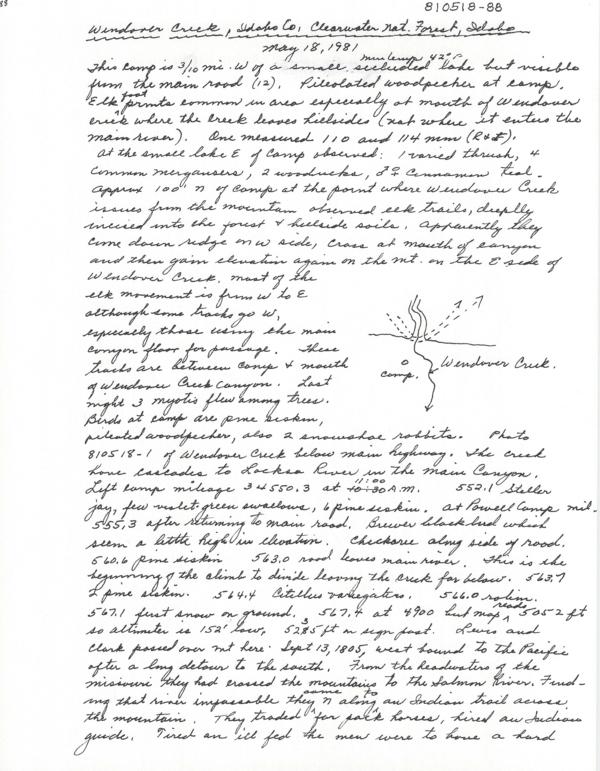 88
810518-88
Wendover Creek, Idaho Co, Clearwater Nat. Forest, Idaho
May 18, 1981
min temp 42°F
This camp is 3/10 mi. W of a small secluded lake but visible
from the main road (12). Pileolated woodpecher at camp.
Elk foot prints common in area especially at mouth of Wendover
creek where the creek leaves hillsides (not where it enters the
main river). One measured 110 and 114 mm (R&F).
At the small lake E of camp observed: 1 varied thrush, 4
common mergansers, 2 woodducks, ♂♀ Cinnamon teal.
Approx 100' N of camp at the point where Wendover Creek
issues from the mountain observed elk trails, deeplly
incised into the forest & hillside soils. Apparently they
come down ridge on W side, cross at mouth of canyon
and then gain elevation again on the mt. on the E side of
Wendover Creek. Most of the
elk movement is from W to E
although some tracks go W,
especially those using the main
canyon floor for passage. These
tracks are between camp & mouth
of Wendover Creek Canyon. Last
night 3 myotis flew among trees.
Birds at camp are pine siskin,
camp.
Wendover Creek.
pileated woodpecher, also 2 snowshoe rabbits. Photo
810518-1 of Wendover Creek below main highway. The creek
have cascades to Locksa River in the main Canyon.
Left camp mileage 34550.3 at 10:30 11:00 A.M. 552.1 Steller
jay, few violet green swallows, 6 pine siskin. At Powell Camp mil.
555.3 after returning to main road. Brewer blackbird which
seem a little high in elevation. Chickoree along side of road.
560.6 pine siskin 563.0 road leaves main river. This is the
beginning of the climb to divide leaving the creek far below. 563.7
2 pine siskin. 564.4 Citellus variegatus. 566.0 robin.
567.1 first snow on ground. 567.4 at 4900 but map reads 5052 ft
so altimeter is 152' low, 5235 ft on sign post. Lewis and
Clark passed over mt here Sept 13, 1805, west bound to the Pacific
after a long detour to the south. From the headwaters of the
missiouri they had crossed the mountains to the Salmon River. Find-
ing that river impassable they came n along to an Indian trail across
the mountain. They traded for pack horses, hired an Indian
guide. Tired an ill fed the men were to have a hard